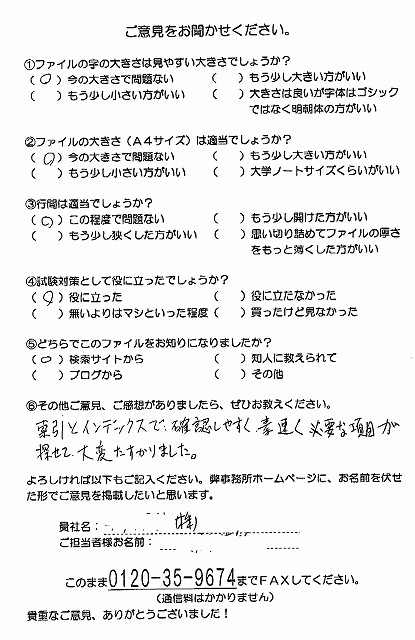 ご意見をお聞かせください。
①ファイルの字の大きさは見やすい大きさでしょうか？
（○）今の大きさで問題ない （　）もう少し大きい方がいい
（　）もう少し小さい方がいい （　）大きさは良いが字体はゴシック
ではなく明朝体の方がいい
②ファイルの大きさ（Ａ４サイズ）は適当でしょうか？
（○）今の大きさで問題ない （　）もう少し大きい方がいい
（　）もう少し小さい方がいい （　）大学ノートサイズくらいがいい
③行間は適当でしょうか？
（○）この程度で問題ない （　）もう少し開けた方がいい
（　）もう少し狭くした方がいい （　）思い切り詰めてファイルの厚さ
をもっと薄くした方がいい
④試験対策として役に立ったでしょうか？
（○）役に立った （　）役に立たなかった
（　）無いよりはマシといった程度 （　）買ったけど見なかった
⑤どちらでこのファイルをお知りになりましたか？
（○）検索サイトから （　）知人に教えられて
（　）ブログから （　）その他
⑥その他ご意見、ご感想がありましたら、ぜひお教えください。
索引とインデックスで、確認しやすく素速く必要な項目が
探せて大変たすかりました。
よろしければ以下もご記入ください。弊事務所ホームページに、お名前を伏せ
た形でご意見を掲載したいと思います。
貴社名： (株)
ご担当者様お名前：
このまま0120-35-9674までＦＡＸしてください。
（通信料はかかりません）
貴重なご意見、ありがとうございました！